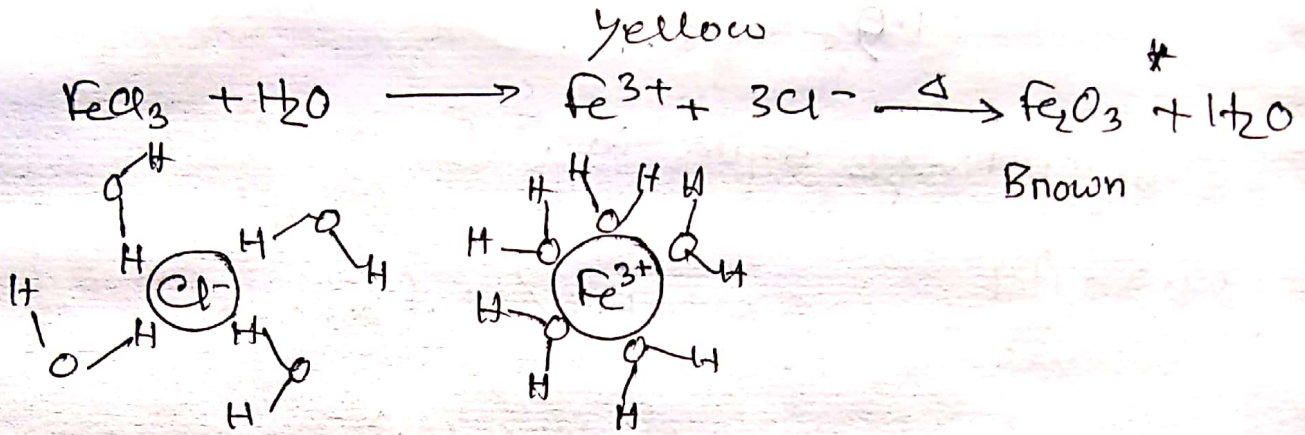 Yellow
FeCl₃ + H₂O ⟶ Fe³⁺ + 3Cl⁻ —Δ→ Fe₂O₃ * + H₂O
Brown
H O H
H H H H
H O H O H O O
H Cl⁻ H H O Fe³⁺ H
H H H O
O H O O H
H H H